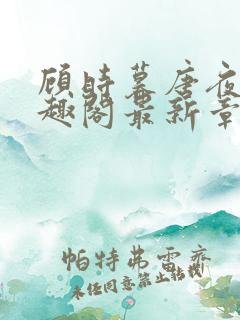 顾时暮唐夜
趣阁最新章
帕特弗雷齐
未经同意禁止转载